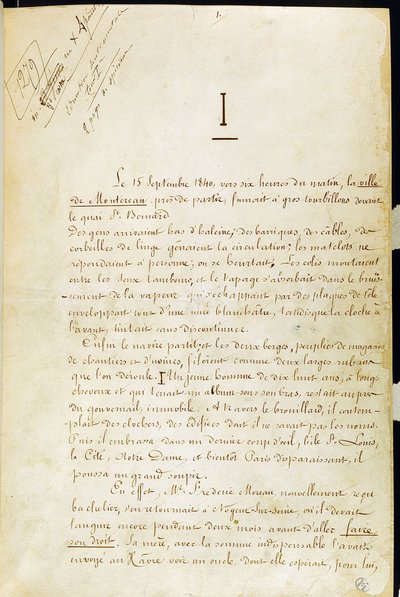 1.
1279
I
Le 15 Septembre 1840, vers six heures du matin, la ville
de Montereau près de partir, fumait à gros tourbillons devant
le quai St. Bernard
Des gens arrivaient hors d'haleine; des barriques, des câbles, des
corbeilles de linge gênaient la circulation; les matelots ne
répondaient à personne; on se heurtait; Les colis montaient
entre les deux tambours, et le tapage s'absorbait dans le bruis-
-sement de la vapeur qui s'échappant par des plaques de tôle
enveloppait tout d'une nuée blanchâtre, tandis que la cloche à
l'avant, tintait sans discontinuer.
Enfin le navire partit; et les deux berges, peuplées de magasins
de chantiers et d'usines, filèrent comme deux larges rubans
que l'on déroule. I Un jeune homme de dix huit ans, à longs
cheveux et qui tenait un album sous son bras, restait auprès
du gouvernail, immobile. A travers le brouillard, il contem-
plait des clochers, des édifices dont il ne savait pas les noms.
Puis il embrassa dans un dernier coup d'œil, l'île St. Louis,
la Cité, Notre Dame, et bientôt Paris disparaissant, il
poussa un grand soupir.
En effet, Mr. Frédéric Moreau nouvellement reçu
bachelier, s'en retournait à Nogent sur Seine, où il devait
languir encore pendant deux mois avant d'aller faire
son droit. Sa mère, avec la somme indispensable l'avait
envoyé au Havre voir un oncle, dont elle espérait, pour lui,